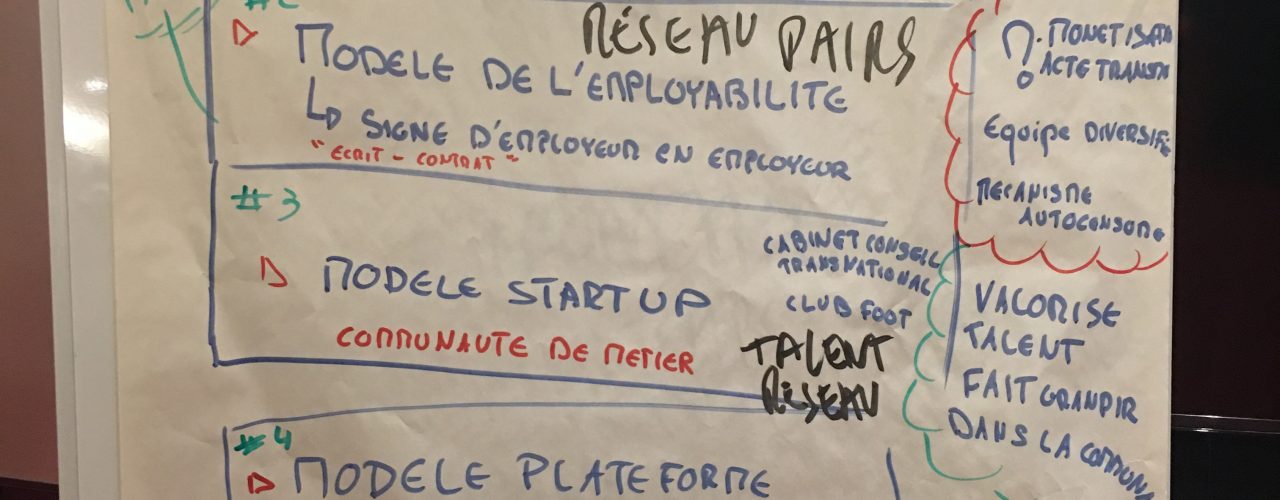 #2
RÉSEAU PAIRS
MODELE DE L'EMPLOYABILITE
SIGNE D'EMPLOYEUR EN EMPLOYEUR
"ECRIT - CONTRAT"
#3
MODELE START UP
COMMUNAUTE DE METIER
CABINET CONSEIL
TRANSNATIONAL
CLUB FOOT
TALENT
RÉSEAU
#4
MODELE PLATEFORME
? MONETISATI
ACTE TRANSM
Equipe DIVERSIFIE
MECANISME
AUTOCONSOME
VALORISE
TALENT
FAIT GRANDIR
DANS LA COMMUNA